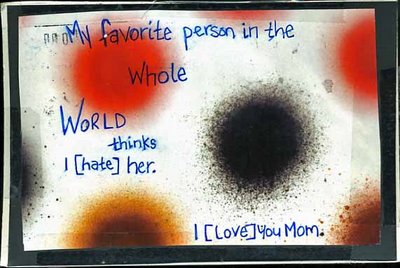 My favorite person in the
Whole
WORLD
thinks
I [hate] her.
I [Love] you Mom.